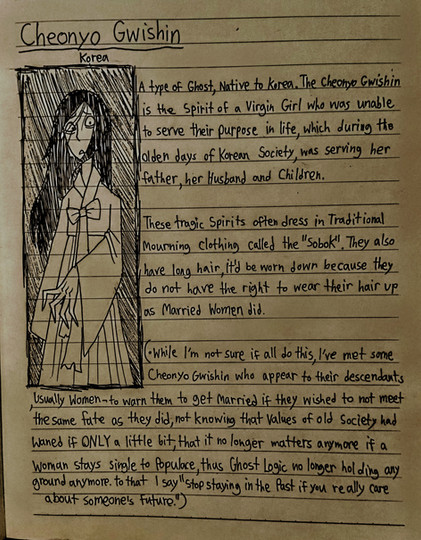 Cheonyo Gwishin
Korea
A type of Ghost, Native to Korea. The Cheonyo Gwishin
is the Spirit of a Virgin Girl who was unable
to serve their purpose in life, which during the
olden days of Korean Society, was serving her
father, her Husband and Children.
These tragic Spirits often dress in Traditional
Mourning clothing called the "Sobok". They also
have long hair, it'd be worn down because they
do not have the right to wear their hair up
as Married Women did.
(•While I'm not sure if all do this, I've met some
Cheonyo Gwishin who appear to their descendants
,usually Women~to warn them to get Married if they wished to not meet
the same fate as they did, not knowing that Values of old Society had
Waned if ONLY a little bit, that it no longer matters anymore if a
Woman stays single to Populace, thus Ghost Logic no longer holding any
ground anymore. to that I say "stop staying in the Past if you really care
about someone's future.")